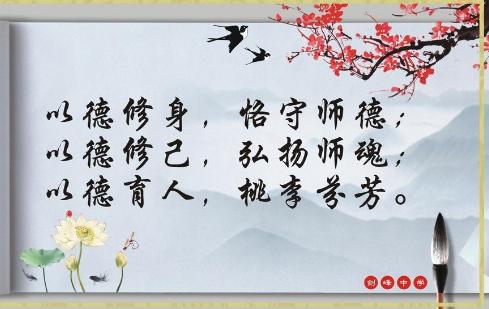 以德修身，恪守师德；
以德修己，弘扬师魂；
以德育人，桃李芬芳。
剑峰中学